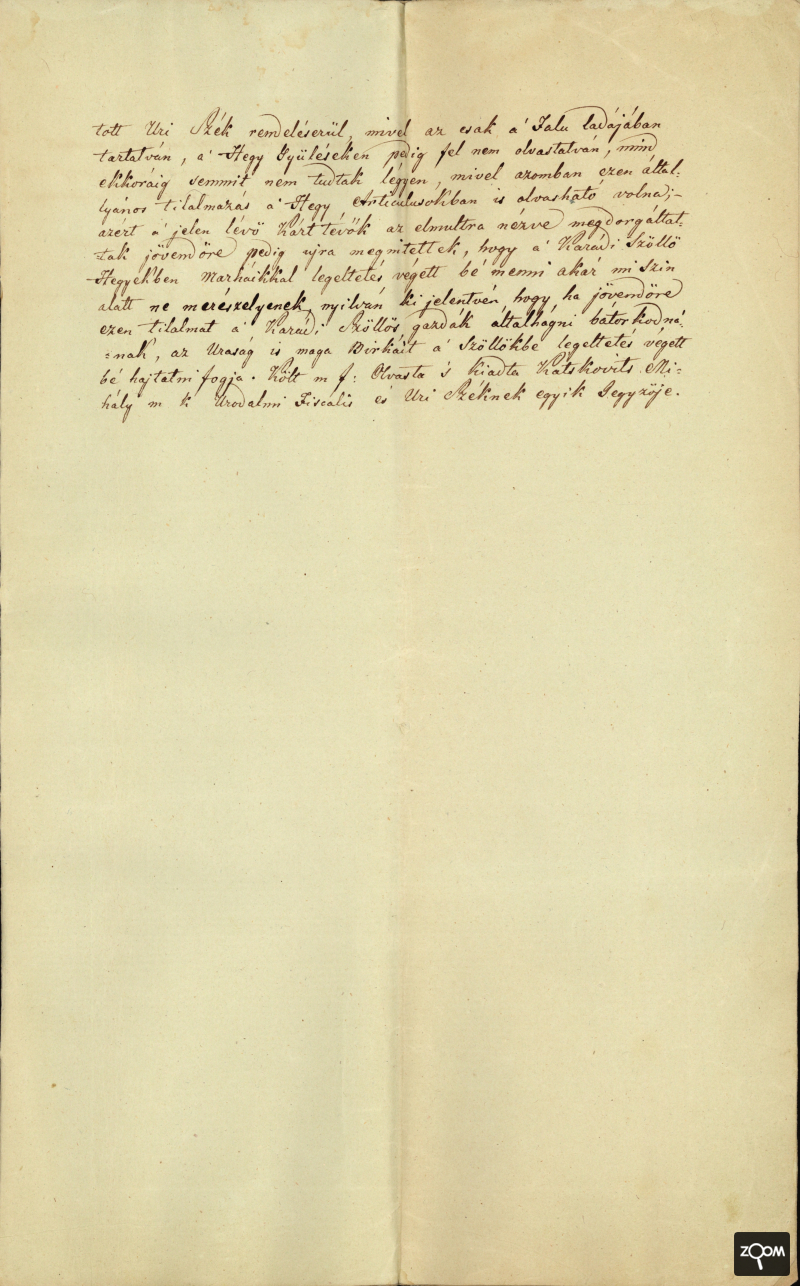 tott Uri Szék rendeléserül, mivel az csak a' Falu ládájában
tartatván, a' Hegy Gyüléseken pedig fel nem olvastatván, mind
ekkoráig semmit nem tudtak légyen, mivel azomban ezen által-
lyános tilalmazás a' Hegy Articulusokban is olvasható volna;-
azért a' jelen lévö Kárt tévök az elmultra nézve megdorgáltat-
tak jövendöre pedig ujra megintettek, hogy a' Karádi Szöllö
Hegyekben Marháikkal legeltetés végett bé menni akár mi szin
alatt ne merészelyenek, nyilván ki jelentvén, hogy, ha jövendöre
ezen tilalmat a' Karádi Szöllös gazdák általhágni bátorkodná-
:nak, az Uraság is maga Birkáit a' Szöllökbe legeltetés végett
bé hajtatni fogja. Költ m f: Olvasta 's kiadta Katskovits Mi=
hály m k Urodalmi Fiscalis es Uri Széknek egyik Jegyzöje.
ZOOM